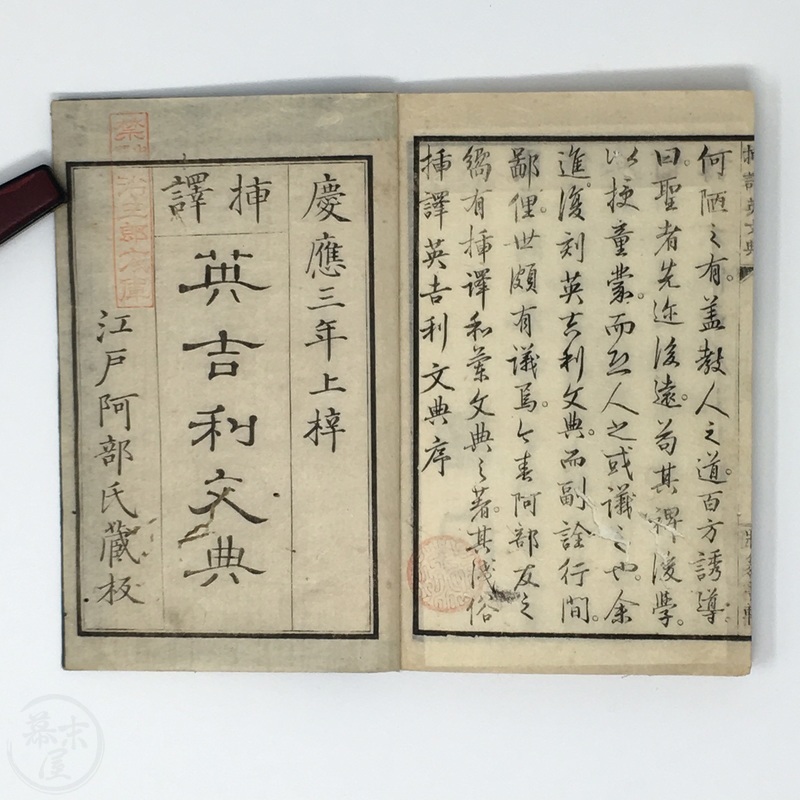 慶應三年上梓
挿譯
英吉利文典
江戸阿部氏藏板
挿譯英吉利文典序
嚮有挿譯和蘭文典之著。其浅俗
鄙俚世頗有議焉。今春阿部友之
進。復刻英吉利文典。而副詮行間。
以授童蒙。而恐人之或議之也。余
曰。聖者先迩後遠。苟其裨後学。
何陋之有。蓋教人之道。百方誘導。
幕末屋